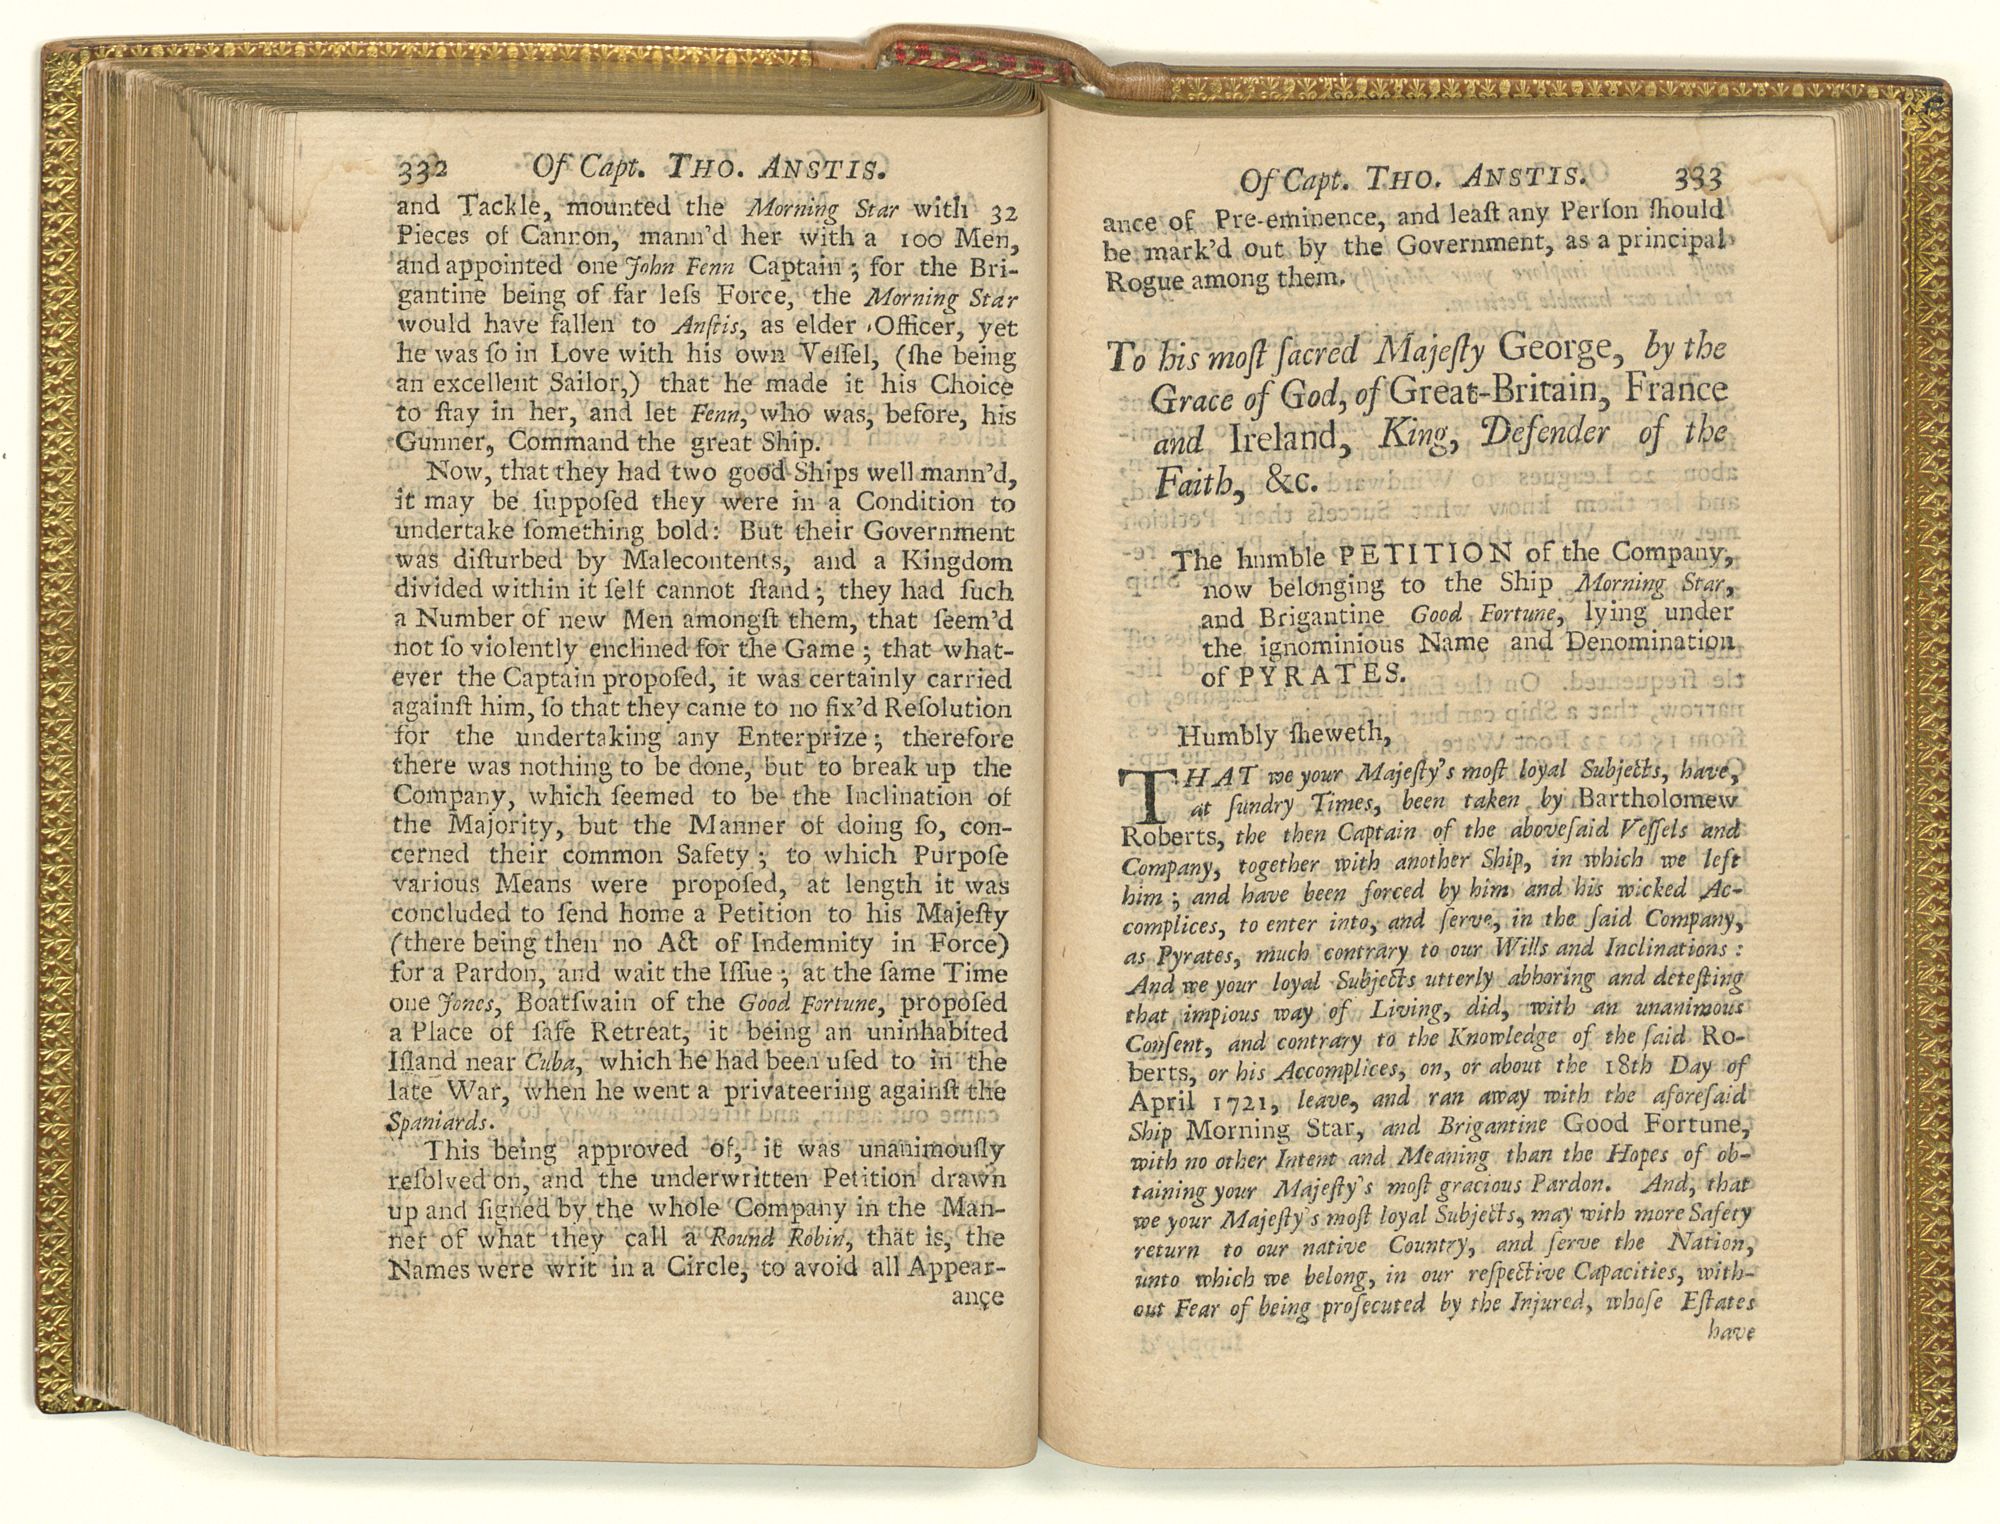 332 Of Capt. THO. ANSTIS.
and Tackle, mounted the Morning Star with 32
Pieces of Cannon, mann'd her with a 100 Men,
and appointed one John Fenn Captain; for the Bri-
gantine being of far leſs Force, the Morning Star
would have fallen to Anſtis, as elder Officer, yet
he was ſo in Love with his own Veſſel, (ſhe being
an excellent Sailor,) that he made it his Choice
to ſtay in her, and let Fenn, who was, before, his
Gunner, Command the great Ship.
Now, that they had two good Ships well mann'd,
it may be ſuppoſed they were in a Condition to
undertake ſomething bold: But their Government
was diſturbed by Malecontents, and a Kingdom
divided within it ſelf cannot ſtand; they had ſuch
a Number of new Men amongſt them, that ſeem'd
not ſo violently enclined for the Game; that what-
ever the Captain propoſed, it was certainly carried
againſt him, ſo that they came to no fix'd Reſolution
for the undertaking any Enterprize; therefore
there was nothing to be done, but to break up the
Company, which ſeemed to be the Inclination of
the Majority, but the Manner of doing ſo, con-
cerned their common Safety; to which Purpoſe
various Means were propoſed, at length it was
concluded to ſend home a Petition to his Majeſty
(there being then no Act of Indemnity in Force)
for a Pardon, and wait the Iſſue; at the ſame Time
one Jones, Boatſwain of the Good Fortune, propoſed
a Place of ſafe Retreat, it being an uninhabited
Iſland near Cuba, which he had been uſed to in the
late War, when he went a privateering againſt the
Spaniards.
This being approved of, it was unanimouſly
reſolved on, and the underwritten Petition drawn
up and ſigned by the whole Company in the Man-
ner of what they call a Round Robin, that is, the
Names were writ in a Circle, to avoid all Appear-
ance
Of Capt. THO. ANSTIS. 333
ance of Pre-eminence, and leaſt any Perſon ſhould
be mark'd out by the Government, as a principal
Rogue among them.
To his moſt ſacred Majeſty George, by the
Grace of God, of Great-Britain, France
and Ireland, King, Defender of the
Faith, &c.
The humble PETITION of the Company,
now belonging to the Ship Morning Star,
and Brigantine Good Fortune, lying under
the ignominious Name and Denomination
of PYRATES.
Humbly ſheweth,
THAT we your Majeſty's moſt loyal Subjects, have,
at ſundry Times, been taken by Bartholomew
Roberts, the then Captain of the aboveſaid Veſſels and
Company, together with another Ship, in which we left
him; and have been forced by him and his wicked Ac-
complices, to enter into, and ſerve, in the ſaid Company,
as Pyrates, much contrary to our Wills and Inclinations:
And we your loyal Subjects utterly abhoring and deteſting
that impious way of Living, did, with an unanimous
Conſent, and contrary to the Knowledge of the ſaid Ro-
berts, or his Accomplices, on, or about the 18th Day of
April 1721, leave, and ran away with the aforeſaid
Ship Morning Star, and Brigantine Good Fortune,
with no other Intent and Meaning than the Hopes of ob-
taining your Majeſty's moſt gracious Pardon. And, that
we your Majeſty's moſt loyal Subjects, may with more Safety
return to our native Country, and ſerve the Nation,
unto which we belong, in our reſpective Capacities, with-
out Fear of being proſecuted by the Injured, whoſe Eſtates
have